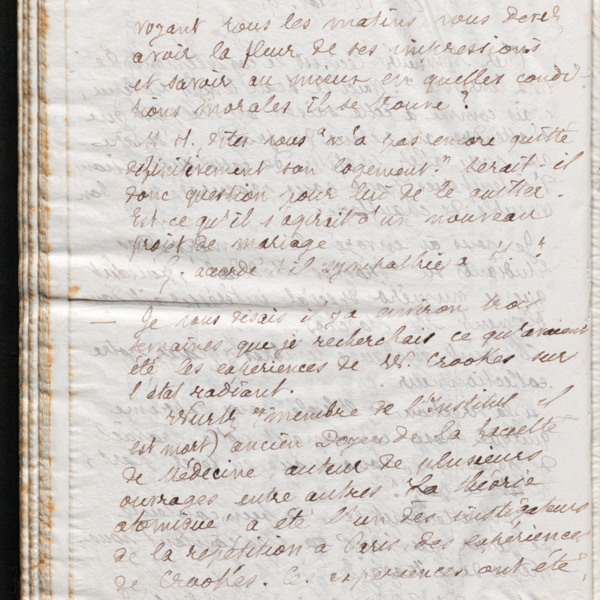 voyant tous les matins vous devez
avoir la fleur de ses impressions
et savoir au mieux en quelles condi
tions morales il se trouve ?
M H. dites vous "n'a pas encore quitté
définitivement son logement." Serait il
donc question pour lui de le quitter.
Est-ce qu'il s'agirait d'un nouveau
projet de mariage
accorde t il sympathie a
— Je vous disais il y a environ trois
semaines que je recherchais ce qu'avaient
été les expériences de W. Crookes sur
l'état radiant.
Wurtz membre de l'Institut il
est mort) ancien Doyen de la faculté
de Médecine auteur de plusieurs
ouvrages entre autres "La théorie
atomique" a été l'un des instigateurs
de la répétition a Paris des expériences
de Crookes. Ces expériences ont été